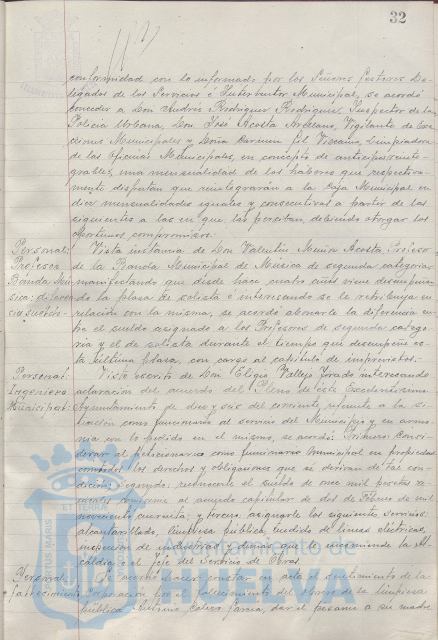 32
conformidad con lo informado por los Señores Gestores De-
legados de los Servicios é Interventor Municipal, se acordó
conceder a Don Andrés Rodriguez Rodriguez, Inspector de la
Policia Urbana, Don José Acosta Vigilante de
Municipales y Doña Carmen Gil Vizcaino, Limpiadora
de las Oficinas Municipales, en concepto de anticipo reinte-
grable, una mensualidad de los haberes que respectiva-
mente disfrutan que reintegrarán a la Caja Municipal en
diez mensualidades iguales y consecutivas a partir de las
siguientes a las en que las perciban, debiendo otorgar los
oportunos compromisos.
Personal: Vista instancia de Don Valentin Muñoz Acosta, Profeso
Profesor de la Banda Municipal de Música de segunda categoria
Banda Mú- manifestando que desde hace cuatro años viene desempeñan-
sica: do la plaza de solista é interesando se le retribuya en
relación con la misma, se acordó abonarle la diferencia en-
tre el sueldo asignado a los Profesores de segunda catego-
ria y el de solista durante el tiempo que desempeñe es-
ta última plaza, con cargo al capítulo de imprevistos.
Personal: Visto escrito de Don Eligio Vallejo interesando
Ingeniero aclaración del acuerdo del Pleno de este Excelentísimo
Municipal: Ayuntamiento de diez y seis del corriente referente a la si-
tuación como funcionario al servicio del Municipio y en armo-
nia con lo pedido en el mismo, se acordó: Primero: Consi-
derar al peticionario como funcionario municipal en propiedad
con todos los derechos y obligaciones que se derivan de tal con-
dición; segundo: reconocerle el sueldo de once mil pesetas
conforme al acuerdo capitular de dos de Febrero de mil
novecientos cuarenta; y tercero; asignarle los siguientes servicios:
alcantarillado, limpieza pública, tendido de lineas eléctricas,
inspección de industrias y demás que le encomiende la Al-
caldia o el Jefe del Servicio de Obras.
Personal: Se acordó hacer constar en acta el sentimiento de la
Fallecimiento: Corporación por el fallecimiento del obrero de la limpieza
pública Antonio Garcia, dar el pésame a su madre
Ayuntamiento de
HUELVA
PORTUS MARIS
ET TERRAE